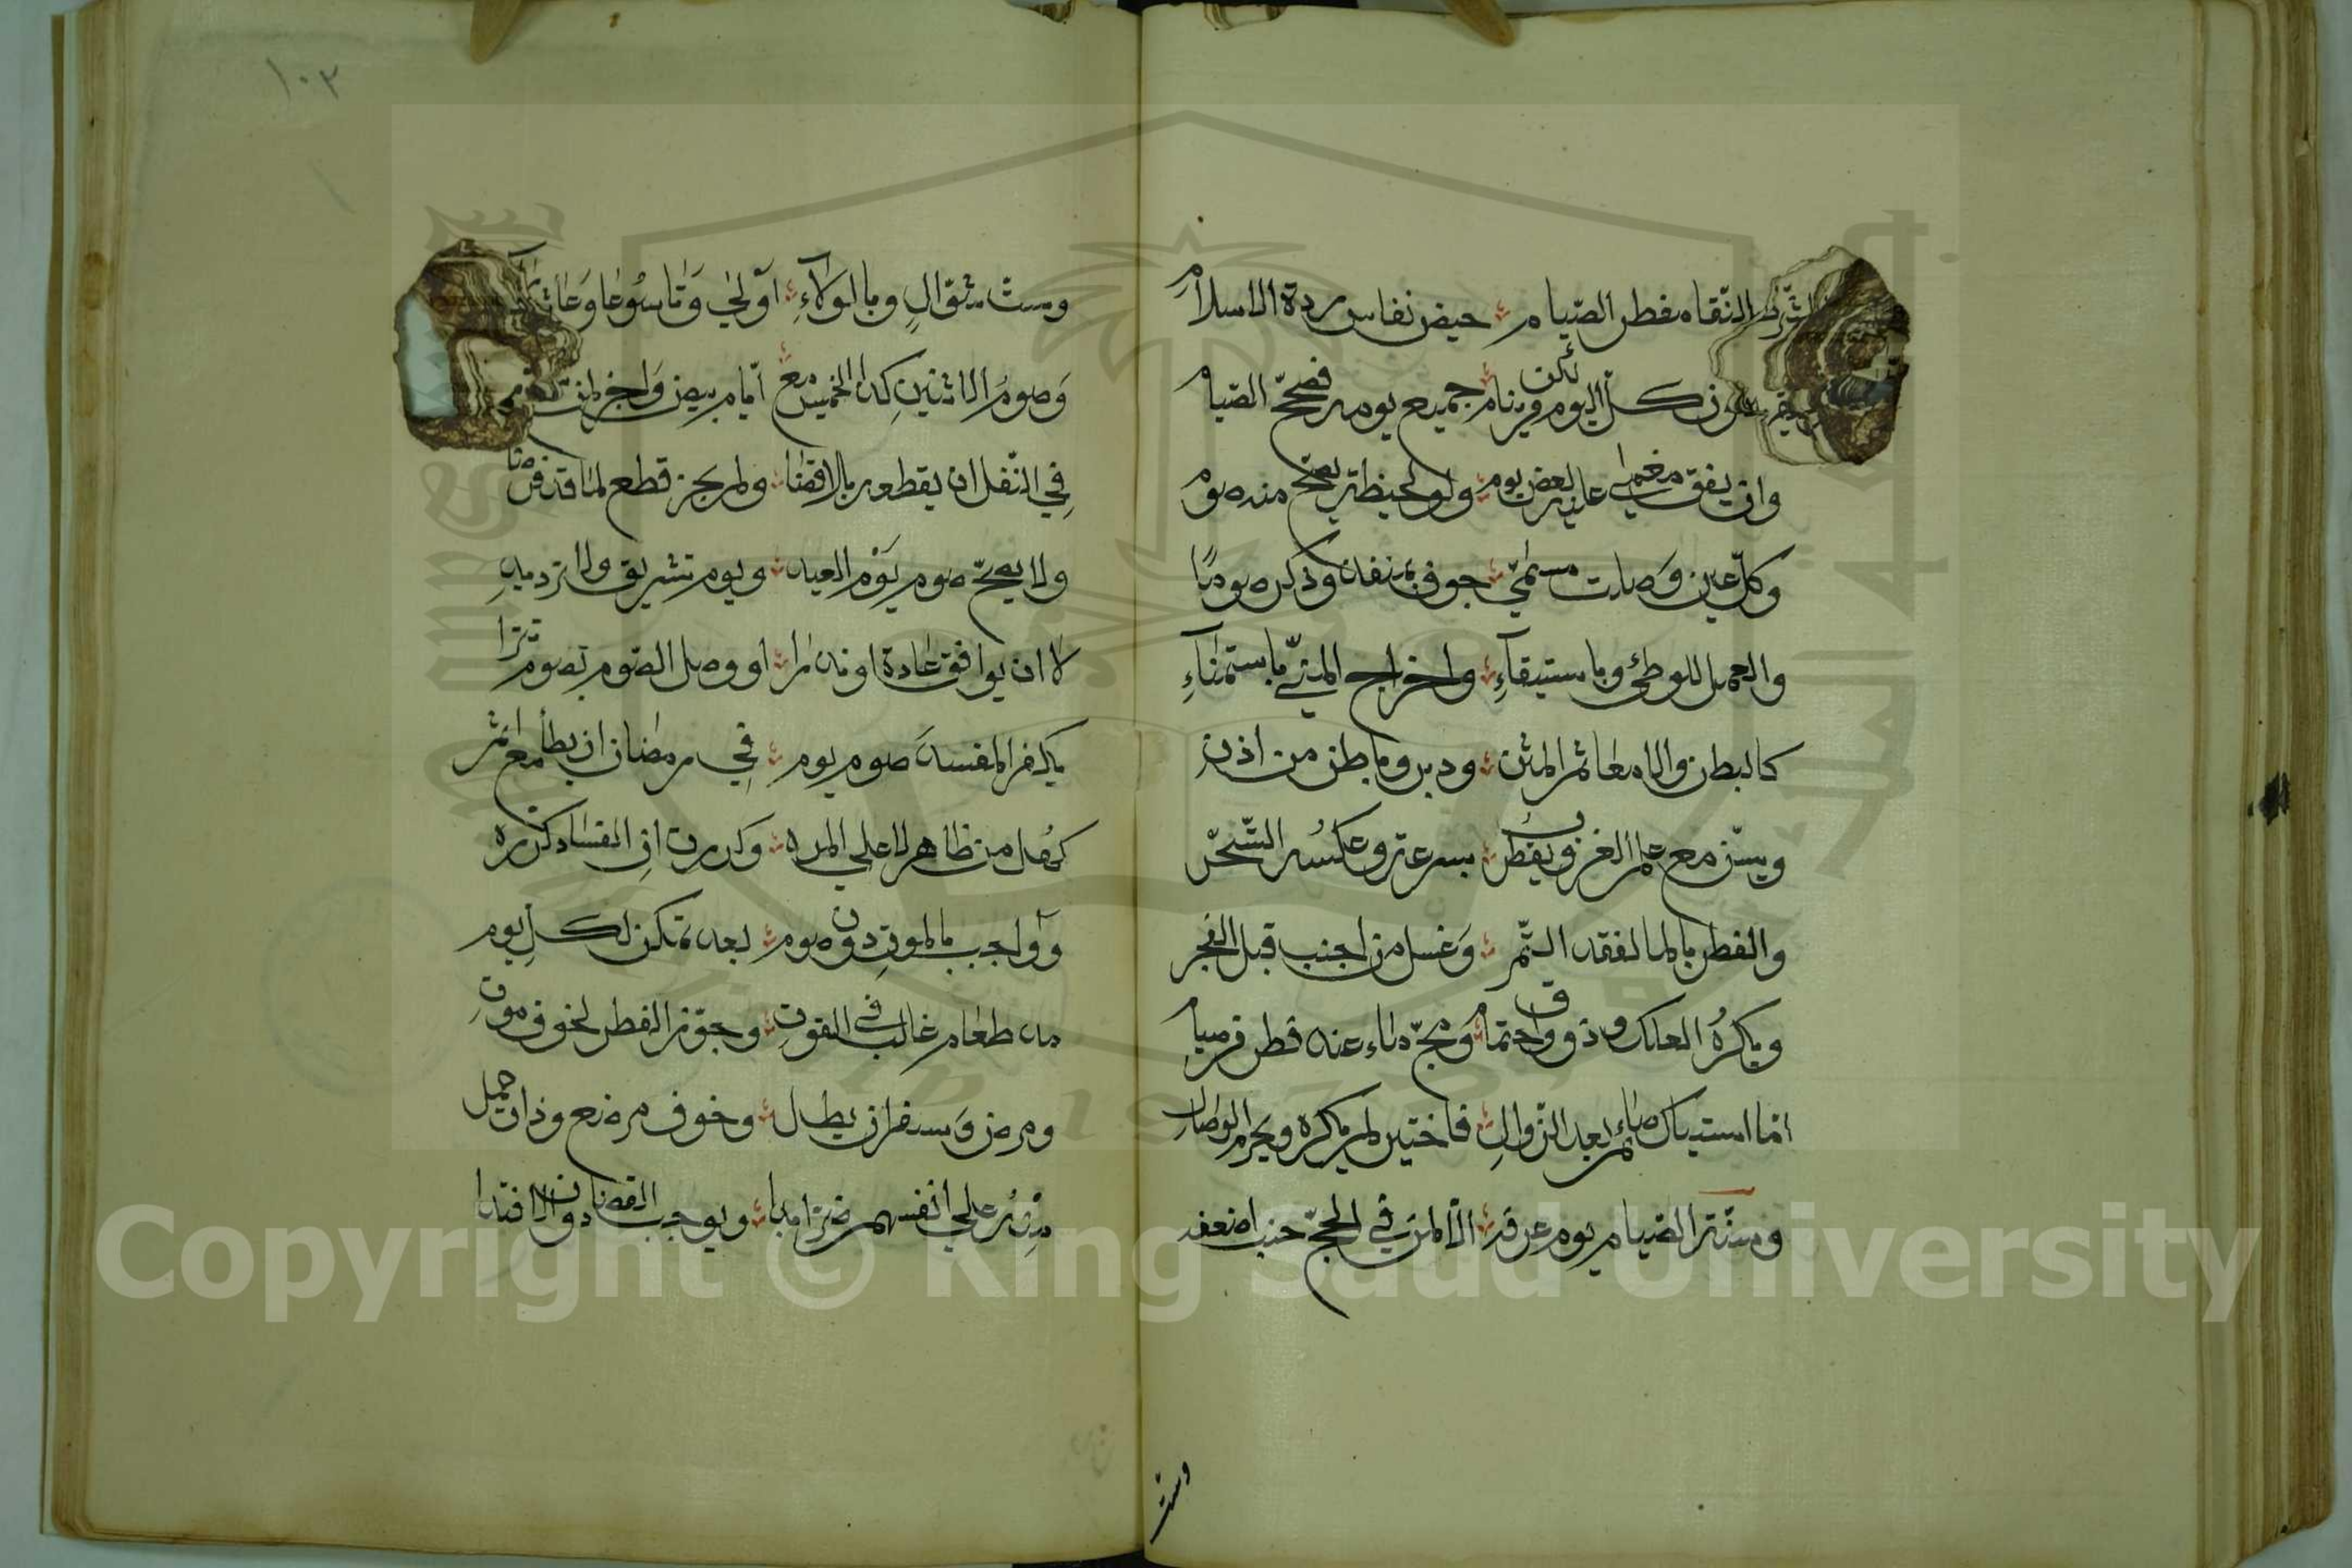 شرط النقا مفطر الصيام حيض نفاس ردة الاسلام
جنون كل اليوم لكن من ينام جميع يومه فصحح الصيام
وان يفق مغمى عليه بعض يوم ولو لحيظة يصح منه صوم
وكل عين وصلت مسمى جوف بمنفذ وذكر صوما
والعمد للوطئ وباستيقاء واخراج المني باستمناء
كالبطن والامعا ثم المثن ودبر وباطن من اذن
ويسن مع علم الغروب يفطر بسرعة وعكسه التسحر
والفطر بالما لفقد التمر وغسل من اجنب قبل الفجر
ويكره العلك وذوق واحتجام ومج ماء عند فطر من صيام
اما استياك صائم بعد الزوال فاختير لم يكره ويحرم الوصال
وسنة الصيام يوم عرفه الا لمن في الحج حيث اضعفه
وست
١٠٢
وست شوال وبالولاء اولى وتاسوعا وعاشوراء
وصوم الاثنين كذا الخميس مع ايام بيض واجز لمن شرع
في النفل ان يقطعه بلا قضا ولم يجز قطع لما قد فرضا
ولا يصح صوم يوم العيد ويوم تشريق ولا ترديد
لا ان يوافق عادة او نذرا او وصل الصوم بصوم مرا
يكفر المفسد صوم يوم في رمضان ان يطأ مع اثم
كمثل من ظاهر لا على المره وكررت ان الفساد كرره
وواجب بالموت دون صوم بعد تمكن لكل يوم
مد طعام غالب في القوت وجوز الفطر لخوف موت
ومرض وسفر ان يطل وخوف مرضع وذات حمل
منه على انفسهم ضرا بدا ويوجب القضا دون الافتدا
Copyright © King Saud University